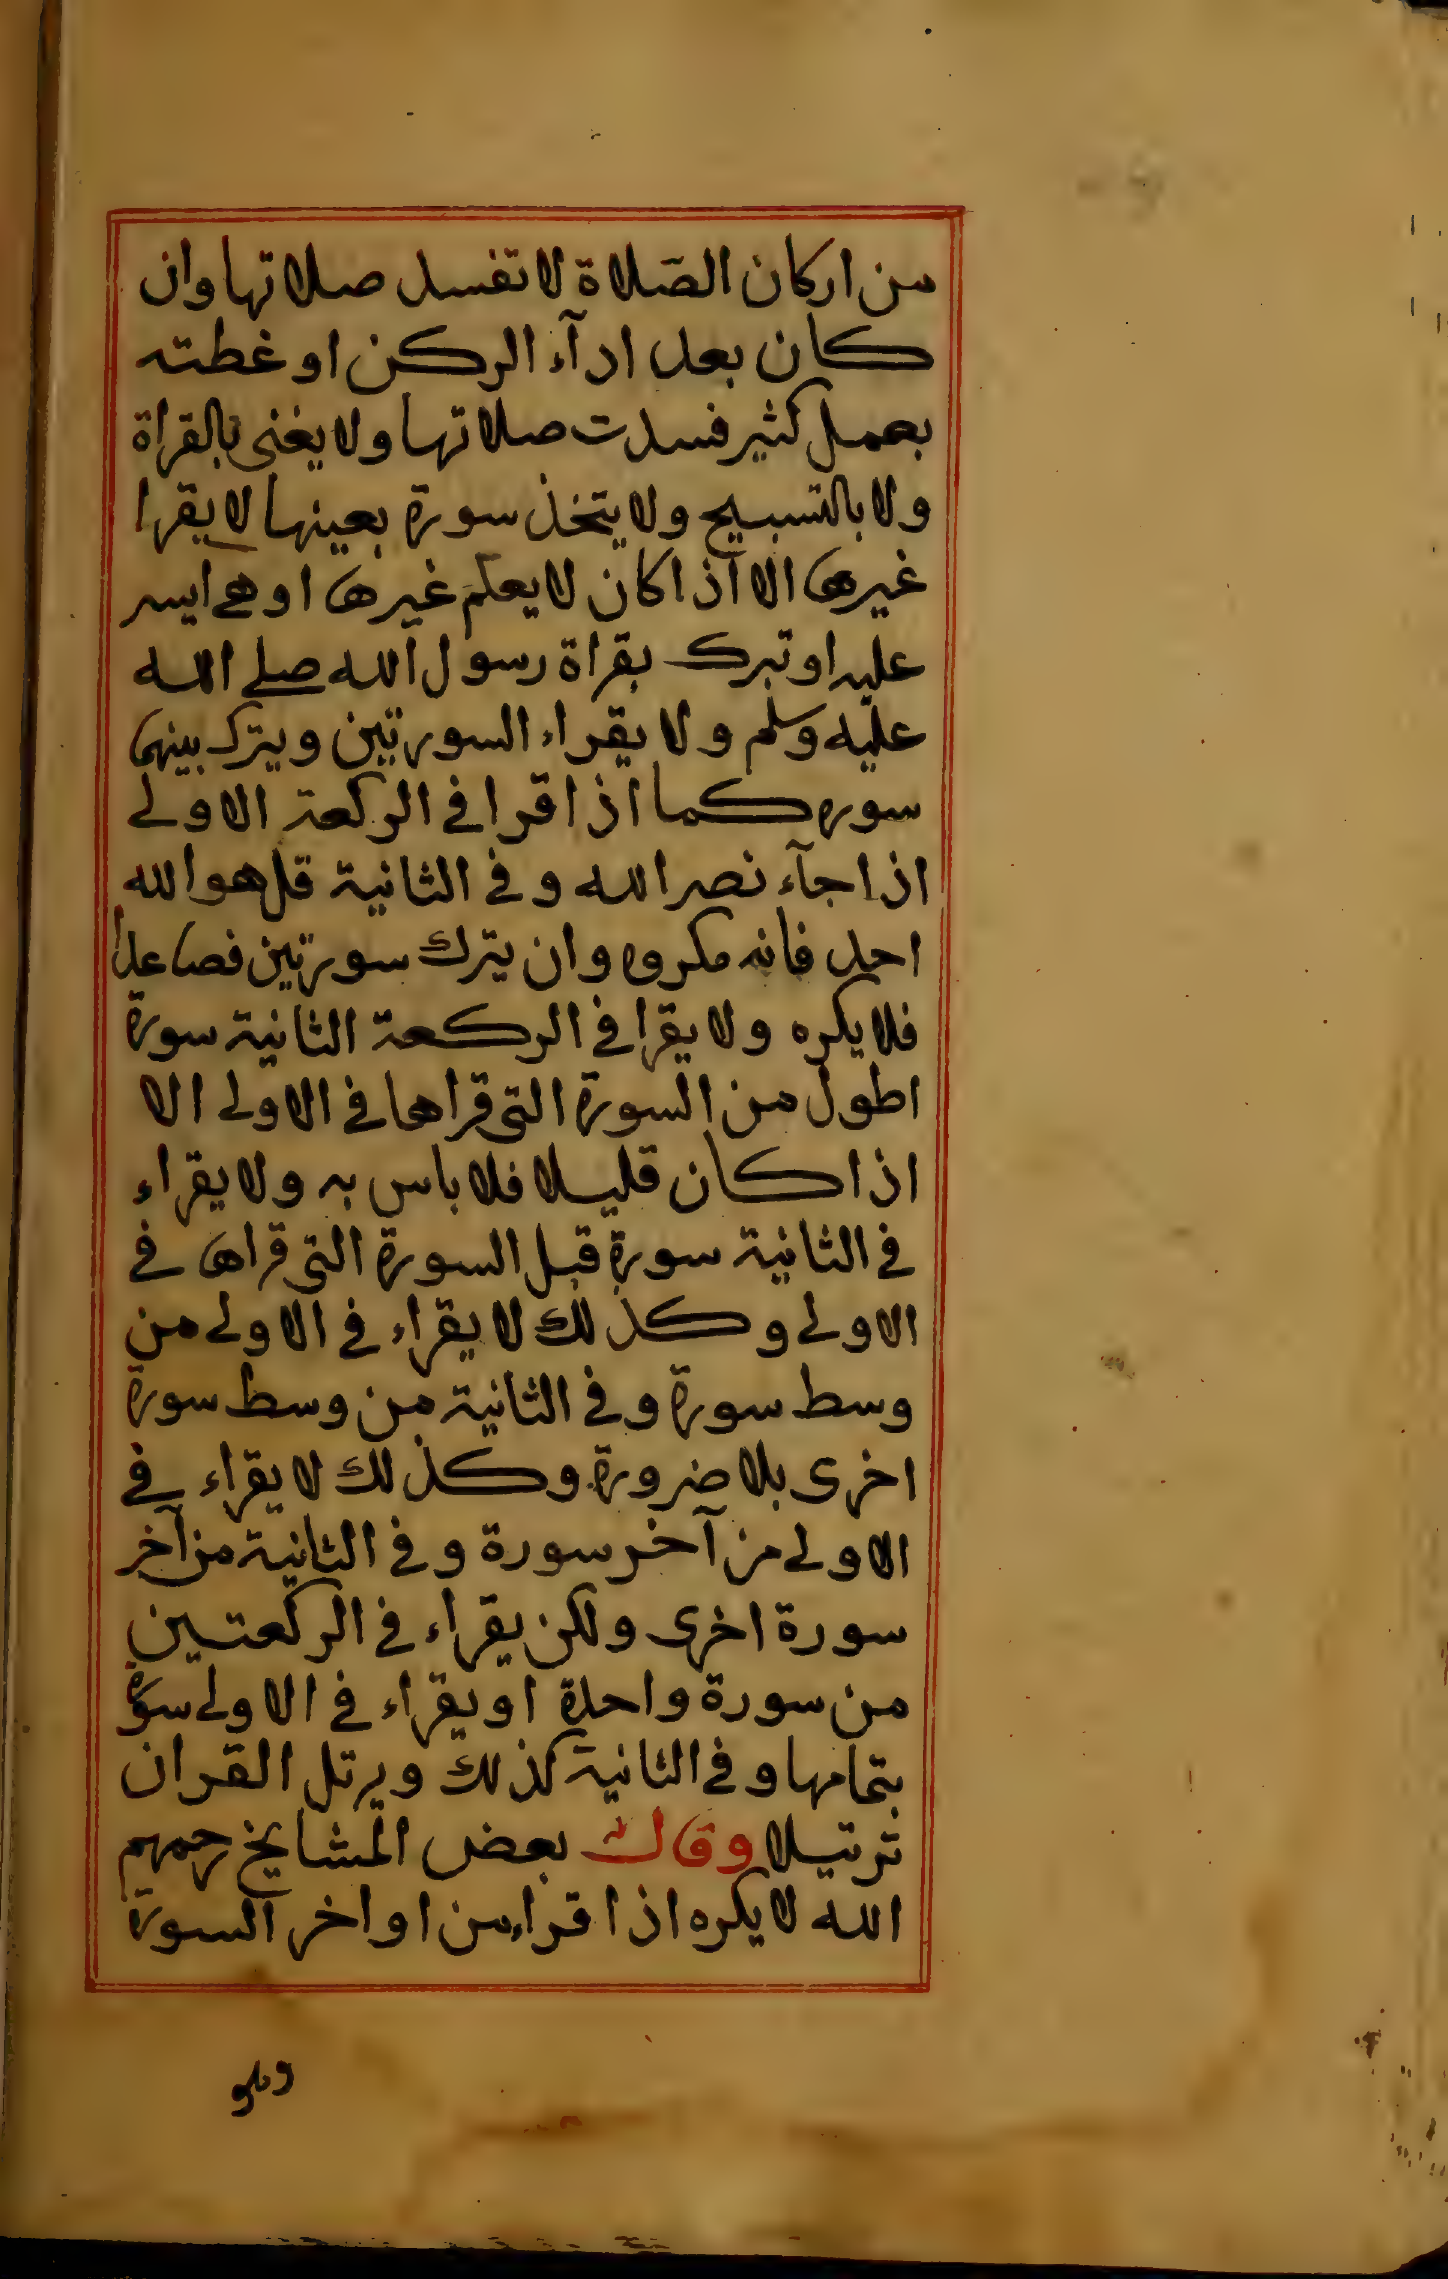 من اركان الصّلاة لا تفسد صلاتها وان
كان بعد ادآء الركن او غطته
بعمل كثير فسدت صلاتها ولا يغنى بالقراة
ولا بالتسبيح ولا يتخذ سورة بعينها لا يقرا
غيرها الا اذا كان لا يعلم غيرها او هي ايسر
عليه او تبرك بقراة رسول الله صلى الله
عليه وسلم ولا يقراء السورتين ويترك بينهما
سوره كما اذا قرا فى الركعة الاولى
اذا جآء نصر الله وفى الثانية قل هو الله
احد فانه مكروه وان يترك سورتين فصاعدا
فلا يكره ولا يقرا فى الركعة الثانية سورة
اطول من السورة التى قراها فى الاولى الا
اذا كان قليلا فلا باس به ولا يقراء
فى الثانية سورة قبل السورة التى قراها فى
الاولى وكذلك لا يقراء فى الاولى من
وسط سورة وفى الثانية من وسط سورة
اخرى بلا ضرورة وكذلك لا يقراء فى
الاولى من آخر سورة وفى الثانية من آخر
سورة اخرى ولكن يقراء فى الركعتين
من سورة واحدة او يقراء فى الاولى سورة
بتمامها وفى الثانية كذلك ويرتل القران
ترتيلا وقال بعض المشايخ رحمهم
الله لا يكره اذا قراء من اواخر السورة